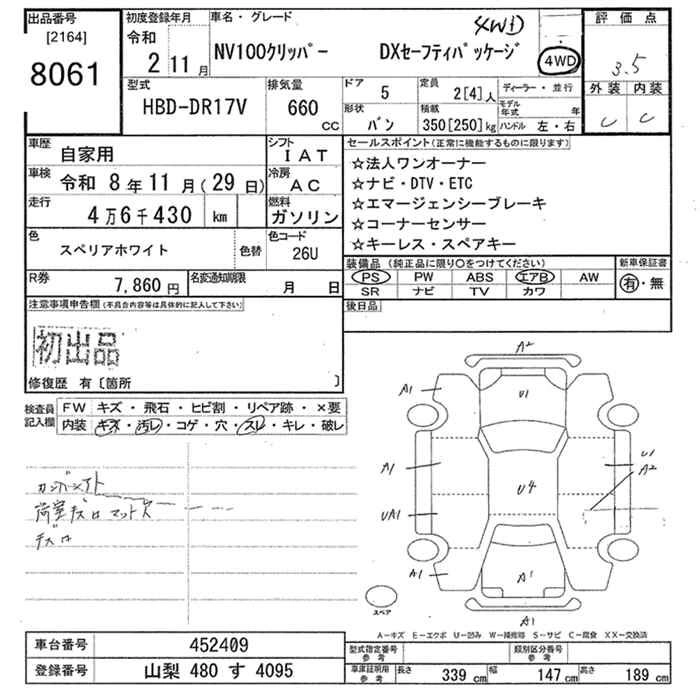 出品番号
[2164]
8061
初度登録年月
令和
2 11月
車名・グレード
4WD
NV100クリッパー DXセーフティパッケージ
4WD
評価点
3.5
外装 内装
C C
型式
HBD-DR17V
排気量
660
CC
ドア
5
形状
バン
定員
2[4]人
積載
350[250]kg
ディーラー・並行
モデル年式 年
ハンドル 左・右
車歴
自家用
シフト
IAT
車検
令和 8年11月(29日)
冷房
AC
走行
4万6千430 km
燃料
ガソリン
色
スペリアホワイト
色替
色コード
26U
R券
7,860円
名変通知期限
月 日
セールスポイント(正常に機能するものに限ります)
☆法人ワンオーナー
☆ナビ・DTV・ETC
☆エマージェンシーブレーキ
☆コーナーセンサー
☆キーレス・スペアキー
装備品(純正品に限り〇をつけてください)
PS PW ABS エアB AW
SR ナビ TV カワ
新車保証書
有・無
後日品
注意事項申告欄(不具合内容等は具体的に記入して下さい)
初出品
修復歴 有〔箇所 〕
検査員記入欄
FW キズ・飛石・ヒビ割・リペア跡・×要
内装 キズ・汚レ・コゲ・穴・スレ・キレ・破レ
荷室キズ マット穴
キズ
A2
A1
U1
A1
U1
A2
U4
UA1
A1
A1
A1
スペア
A-キズ E-エクボ U-凹み W-補修跡 S-サビ C-腐食 XX-交換済
車台番号
452409
登録番号
山梨 480 す 4095
型式指定番号 参考
類別区分番号 参考
車庫証明用 参考
長さ 339 cm 幅 147 cm 高さ 189 cm